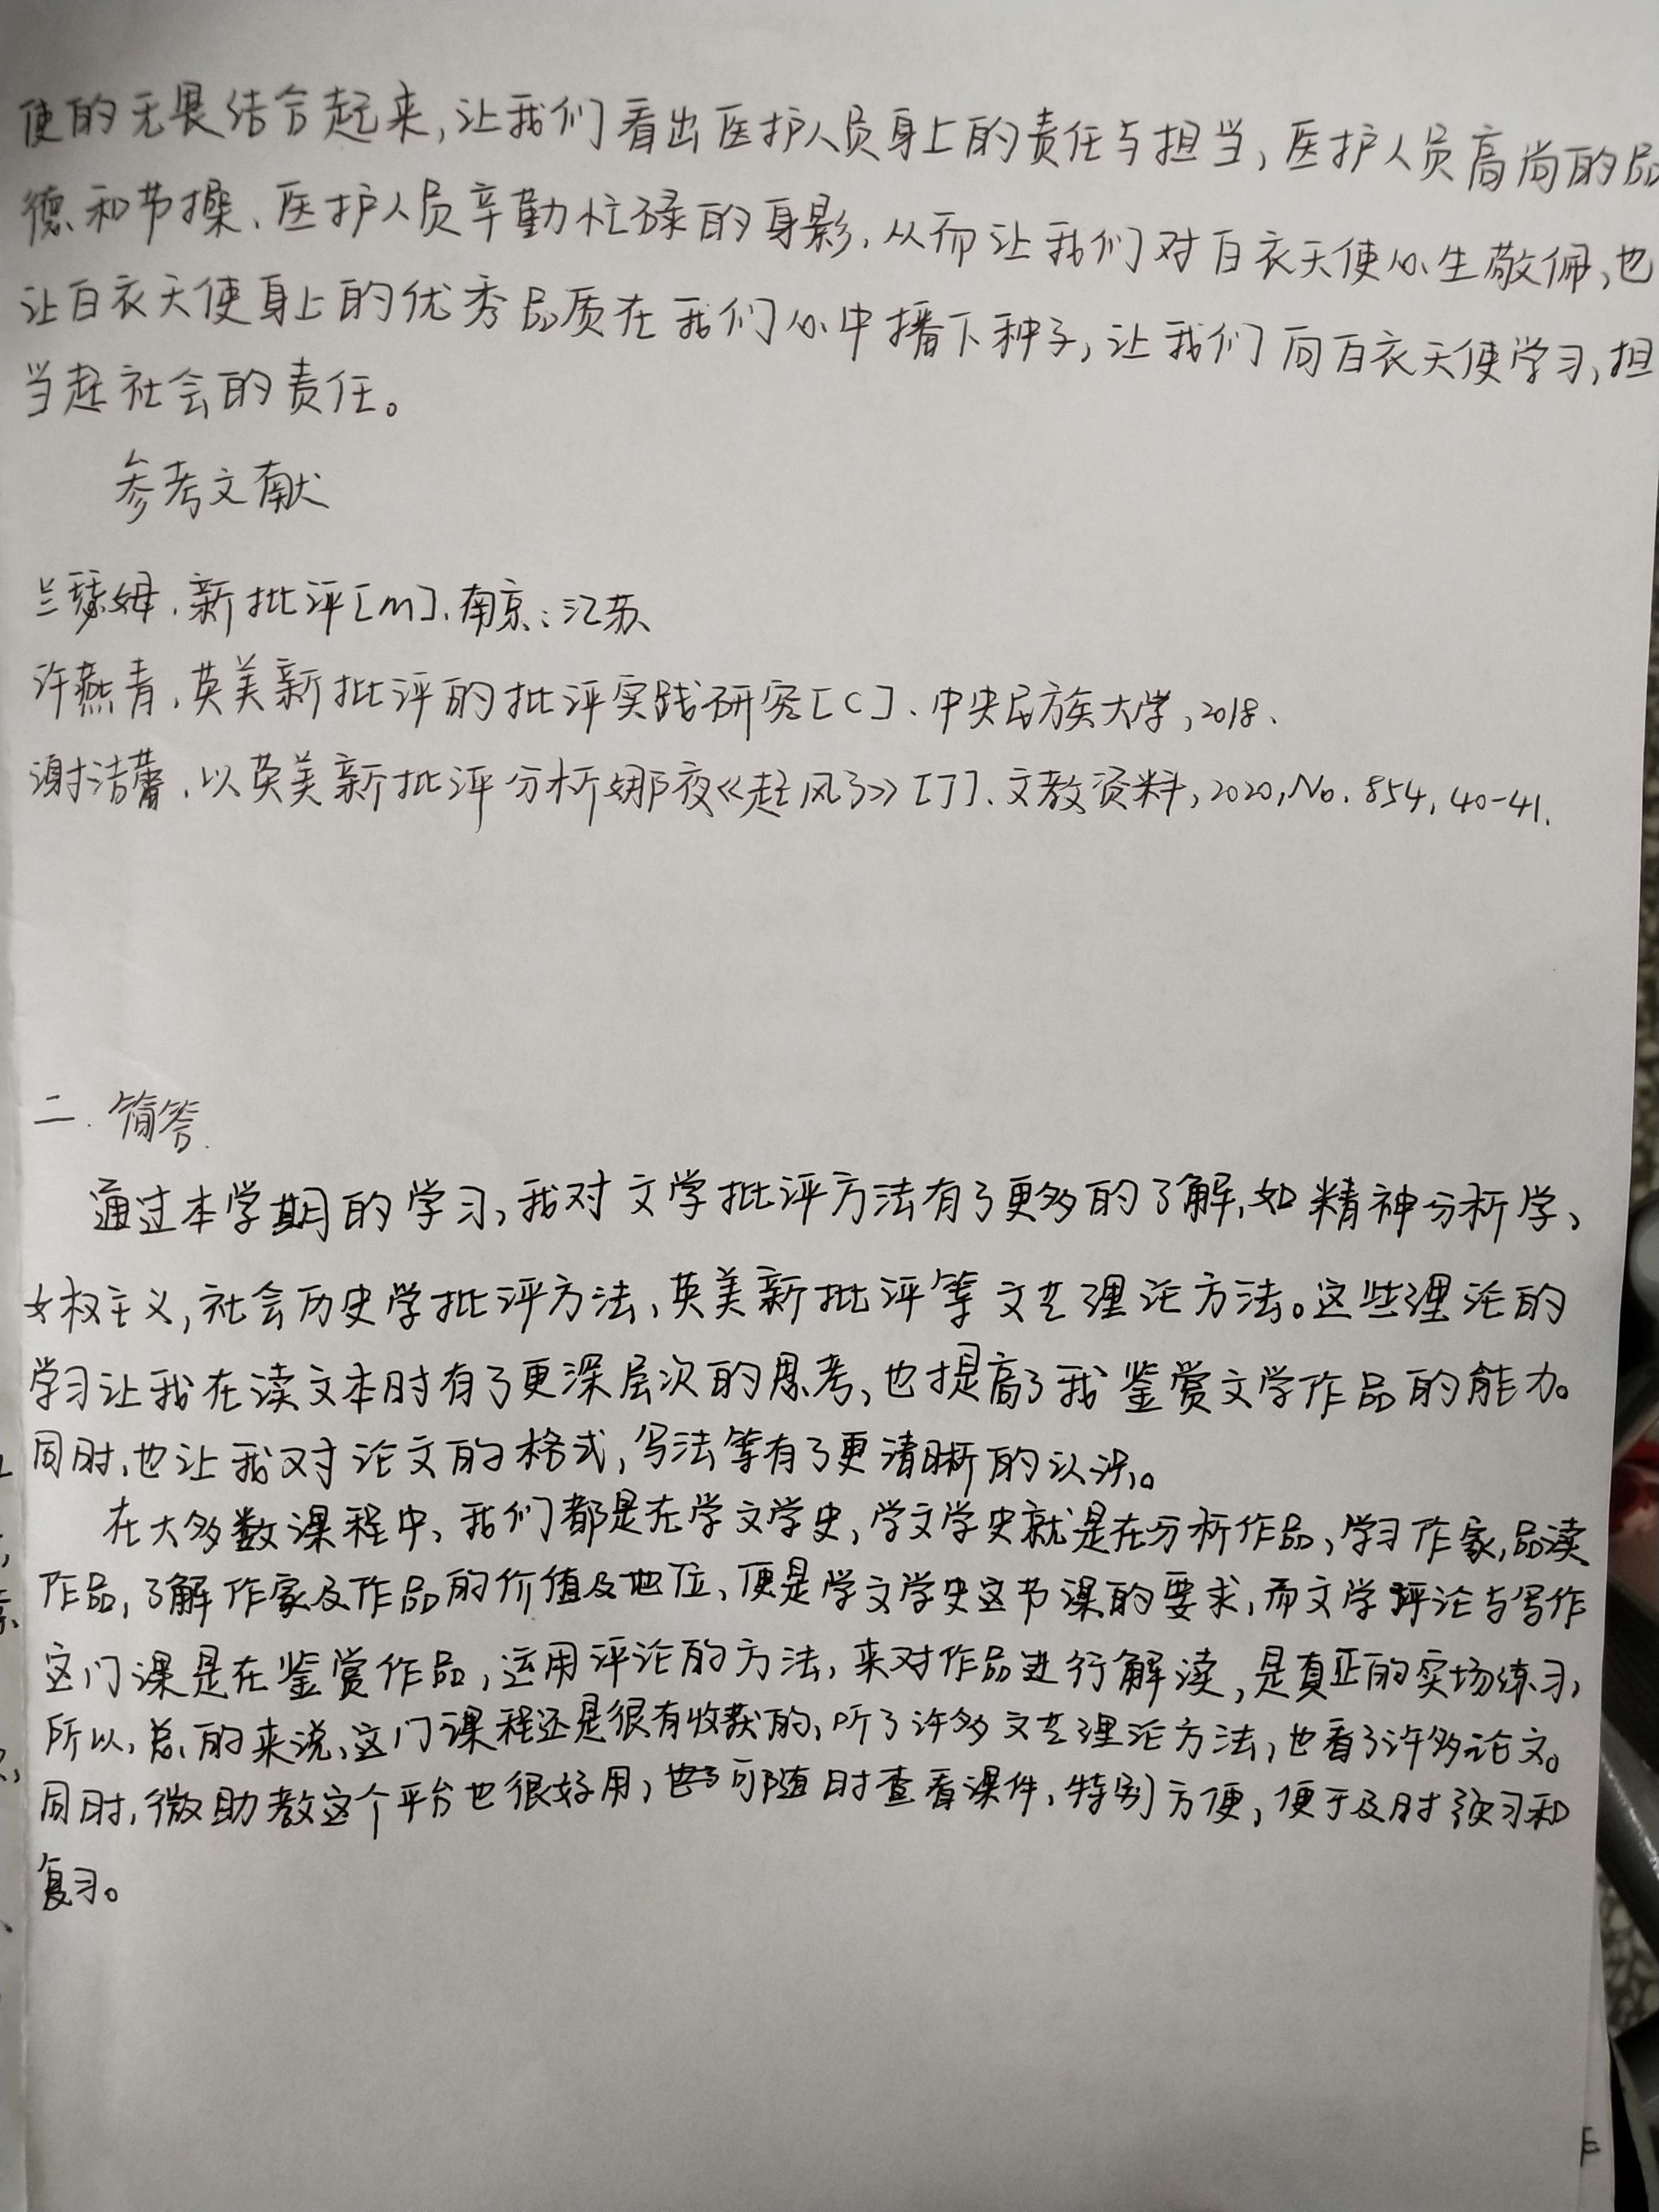 使的无畏结合起来,让我们看出医护人员身上的责任与担当,医护人员高尚的品
德和节操、医护人员辛勤忙碌的身影,从而让我们对白衣天使心生敬佩,也
让白衣天使身上的优秀品质在我们心中播下种子,让我们向白衣天使学习,担
当起社会的责任。
参考文献
兰瑟姆.新批评[M].南京:江苏
许燕青.英美新批评的批评实践研究[C].中央民族大学,2018.
谢洁馨.以英美新批评分析娜夜《起风了》[J].文教资料,2020,No.854,40-41.
二.简答.
通过本学期的学习,我对文学批评方法有了更多的了解,如精神分析学、
女权主义,社会历史学批评方法、英美新批评等文艺理论方法。这些理论的
学习让我在读文本时有了更深层次的思考,也提高了我鉴赏文学作品的能力。
同时,也让我对论文的格式,写法等有了更清晰的认识。
在大多数课程中,我们都是在学文学史,学文学史就是在分析作品,学习作家,品读
作品,了解作家及作品的价值及地位,便是学文学史这节课的要求,而文学评论与写作
这门课是在鉴赏作品,运用评论的方法,来对作品进行解读,是真正的实场练习,
所以,总的来说,这门课程还是很有收获的,听了许多文艺理论方法,也看了许多论文。
同时,微助教这个平台也很好用,可随时查看课件,特别方便,便于及时预习和
复习。